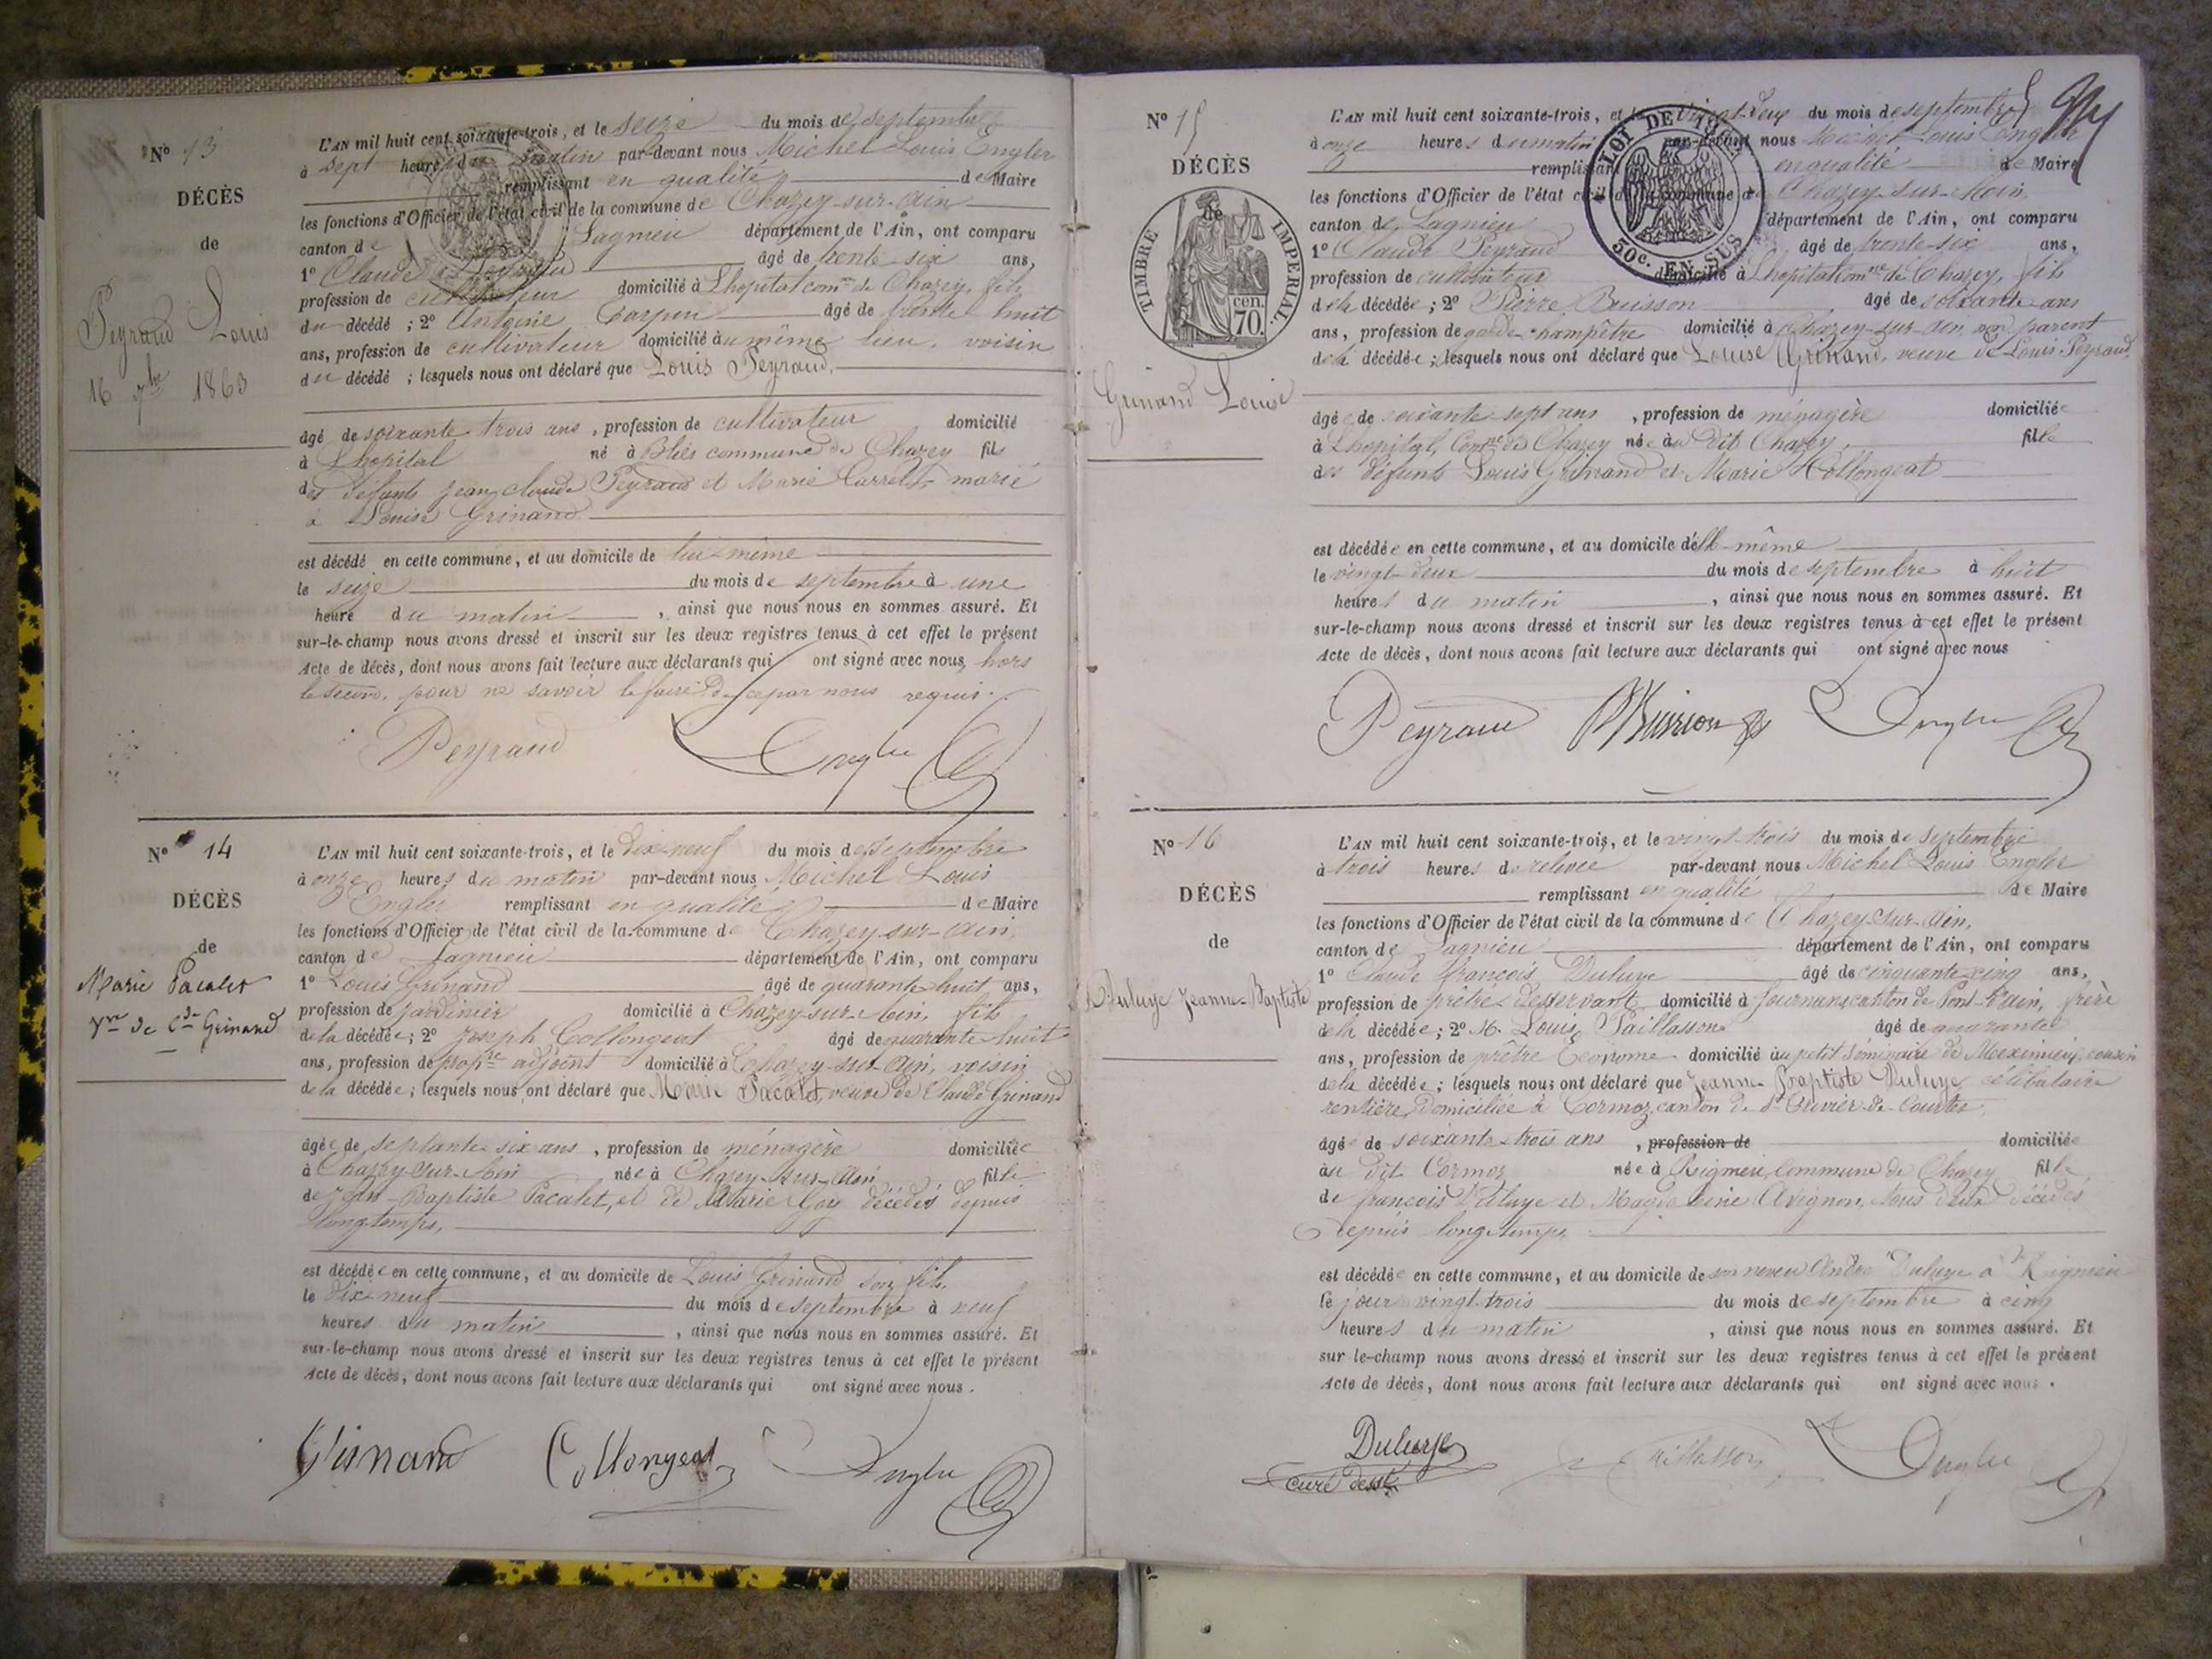 N° 13
DÉCÈS
de
Peyraud Louis
16 7bre 1863
L'AN mil huit cent soixante-trois, et le seize du mois de septembre
à sept heures du matin par-devant nous Michel Louis Engler
remplissant en qualité de Maire
les fonctions d'Officier de l'état civil de la commune de Chazey-sur-Ain
canton de Lagnieu département de l'Ain, ont comparu
1° Claude Peyraud âgé de trente-six ans,
profession de cultivateur domicilié à Lhopital comne de Chazey, fils
du décédé ; 2° Antoine Carpin âgé de trente huit
ans, profession de cultivateur domicilié au même lieu, voisin
du décédé ; lesquels nous ont déclaré que Louis Peyraud,
âgé de soixante trois ans, profession de cultivateur domicilié
à Lhopital né à Bliès commune de Chazey fils
des défunts Jean Claude Peyraud et Marie Carrel, marié
à Louise Grinand
est décédé en cette commune, et au domicile de lui-même
le seize du mois de septembre à une
heure du matin, ainsi que nous nous en sommes assuré. Et
sur-le-champ nous avons dressé et inscrit sur les deux registres tenus à cet effet le présent
Acte de décès, dont nous avons fait lecture aux déclarants qui ont signé avec nous, hors
le second, pour ne savoir le faire de ce par nous requis.
Peyraud Engler
N° 14
DÉCÈS
de
Marie Pacalet
vve de Cde Grinand
L'AN mil huit cent soixante-trois, et le dix-neuf du mois de septembre
à onze heures du matin par-devant nous Michel Louis
Engler remplissant en qualité de Maire
les fonctions d'Officier de l'état civil de la commune de Chazey-sur-Ain,
canton de Lagnieu département de l'Ain, ont comparu
1° Louis Grinand âgé de quarante-huit ans,
profession de jardinier domicilié à Chazey-sur-Ain, fils
de la décédée; 2° Joseph Collongeat âgé de quarante-huit
ans, profession de propre adjoint domicilié à Chazey-sur-Ain, voisin
de la décédée; lesquels nous ont déclaré que Marie Pacalet, veuve de Claude Grinand
âgée de septante-six ans, profession de ménagère domiciliée
à Chazey-sur-Ain née à Chazey-sur-Ain fille
de Jean-Baptiste Pacalet, et de Marie Goy décédés depuis
longtemps,
est décédée en cette commune, et au domicile de Louis Grinand son fils
le dix-neuf du mois de septembre à neuf
heures du matin, ainsi que nous nous en sommes assuré. Et
sur-le-champ nous avons dressé et inscrit sur les deux registres tenus à cet effet le présent
Acte de décès, dont nous avons fait lecture aux déclarants qui ont signé avec nous.
Grinand Collongeat Engler
N° 15
DÉCÈS
de
TIMBRE IMPÉRIAL.
cen. 70.
Grinand Louise
LOI DE
50c. EN SUS
L'AN mil huit cent soixante-trois, et le vingt-deux du mois de septembre
à onze heures du matin par-devant nous Michel Louis Engler
remplissant en qualité de Maire
les fonctions d'Officier de l'état civil de la commune de Chazey-sur-Ain,
canton de Lagnieu département de l'Ain, ont comparu
1° Claude Peyraud âgé de trente-six ans,
profession de cultivateur domicilié à Lhopital comne de Chazey, fils
de la décédée; 2° Pierre Buisson âgé de soixante ans
ans, profession de garde-champêtre domicilié à Chazey-sur-Ain, non parent
de la décédée; lesquels nous ont déclaré que Louise Grinand, veuve de Louis Peyraud,
âgée de soixante-sept ans, profession de ménagère domiciliée
à Lhopital, comne de Chazey née au dit Chazey, fille
des défunts Louis Grinand et Marie Collongeat
est décédée en cette commune, et au domicile d'elle-même
le vingt-deux du mois de septembre à huit
heures du matin, ainsi que nous nous en sommes assuré. Et
sur-le-champ nous avons dressé et inscrit sur les deux registres tenus à cet effet le présent
Acte de décès, dont nous avons fait lecture aux déclarants qui ont signé avec nous
Peyraud PBuisson Engler
N° 16
DÉCÈS
de
Duluye Jeanne-Baptiste
L'AN mil huit cent soixante-trois, et le vingt-trois du mois de septembre
à trois heures de relevée par-devant nous Michel Louis Engler
remplissant en qualité de Maire
les fonctions d'Officier de l'état civil de la commune de Chazey-sur-Ain,
canton de Lagnieu département de l'Ain, ont comparu
1° Claude François Duluye âgé de cinquante-cinq ans,
profession de prêtre desservant domicilié à Journans, canton de Pont-d'Ain, frère
de la décédée; 2° M. Louis Paillasson âgé de quarante
ans, profession de prêtre économe domicilié au petit séminaire de Meximieux, cousin
de la décédée; lesquels nous ont déclaré que Jeanne-Baptiste Duluye, célibataire
rentière, domiciliée à Cormoz canton de St Trivier-de-Courtes,
âgée de soixante-trois ans, profession de domiciliée
au dit Cormoz née à Rignieu, commune de Chazey fille
de François Duluye et Magdeleine Avignon, tous deux décédés
depuis longtemps,
est décédée en cette commune, et au domicile de son neveu André Duluye à Rignieu
le jour vingt-trois du mois de septembre à cinq
heures du matin, ainsi que nous nous en sommes assuré. Et
sur le-champ nous avons dressé et inscrit sur les deux registres tenus à cet effet le présent
Acte de décès, dont nous avons fait lecture aux déclarants qui ont signé avec nous.
Duluye Paillasson Engler
curé desst